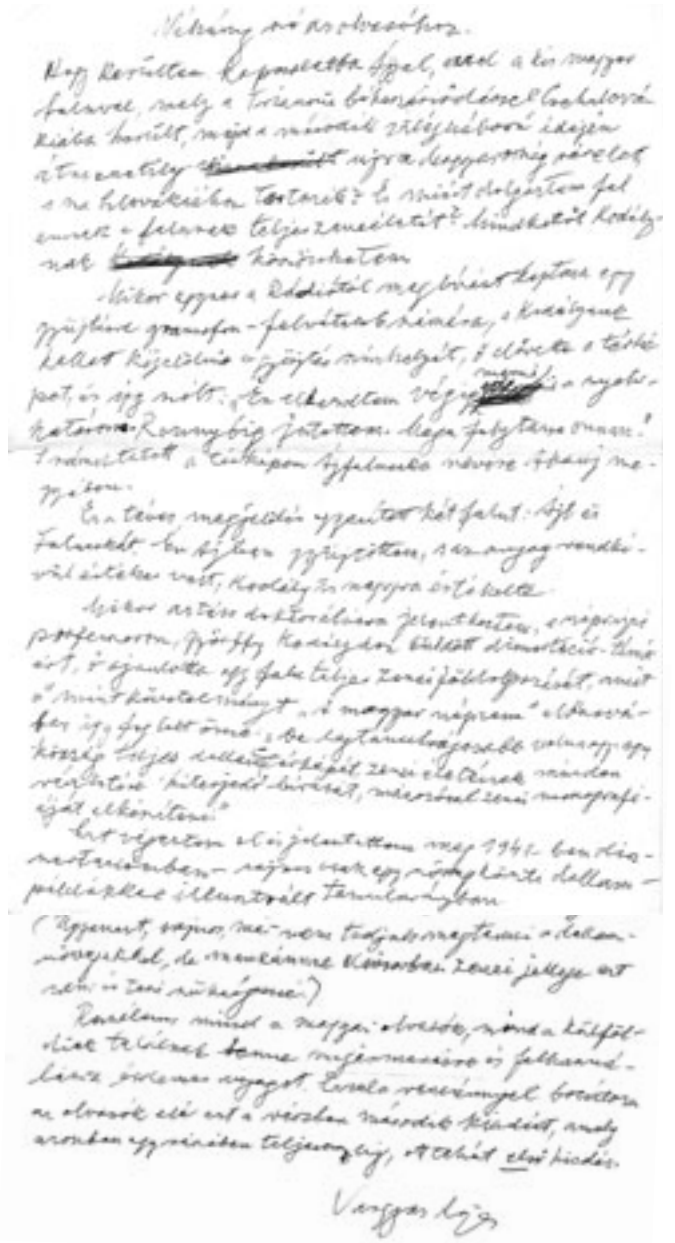 Néhány szó az olvasóhoz.
Hogy kerültem kapcsolatba Ájjal, ezzel a kis magyar
faluval, mely a trianoni békeszerződéssel Csehszlová-
kiába került, majd a második világháború idején
átmenetileg újra Magyarország része lett
s ma Szlovákiához tartozik? És miért dolgoztam fel
ennek a falunak teljes zeneéletét? Mindkettőt Kodály-
nak köszönhetem.
Mikor egyszer a Rádiótól megbízást kaptam egy
gyűjtésre gramofon-felvételek számára, s Kodálynak
kellett kijelölnie a gyűjtés színhelyét, ő elővette a térké-
pet, és így szólt: „Én elkezdtem végig menni a nyelv-
határon. Rozsnyóig jutottam. Maga folytassa onnan."
S rámutatott a térképen Ájfalucska nevére Abaúj me-
gyében.
Ez a téves megjelölés egyesített két falut: Ájt és
Falucskát. Én Ájban gyűjtöttem, s az anyag rendkí-
vül értékes volt, Kodály is nagyra értékelte.
Mikor aztán doktorálásra jelentkeztem, a néprajzi
professzorom, Györffy Kodályhoz küldött disszertáció-témá-
ért, ő ajánlotta egy falu teljes zenei földolgozását, mit
ő mint követelményt „A magyar népzene" előszavá-
ban így fejtett ki: „be legtanulságosabb volna egy-egy
község teljes dallamtérképét zenei életének minden
részletére kiterjedő leírását, mászóval zenei monográfi-
áját elkészíteni."
Ezt végeztem el és jelentettem meg 1941-ben dis-
szertációmban – sajnos csak egy szűk dallam-
példákkal illusztrált tanulmányban.
(Ugyanezt, sajnos, ma sem tudjuk megtenni a dallam-
szövegekkel, de munkánk kimondottan zenei jellege ezt
nem is teszi szükségessé.)
Remélem mind a magyar olvasók, mind a külföl-
diek találnak benne megismerésre és felhaszná-
lásra érdemes anyagot. Ezzel a reménnyel bocsátom
az olvasók elé ezt a részben második kiadást, amely
azonban egészében teljes anyag, s tehát első kiadás.
Vargyas Lajos